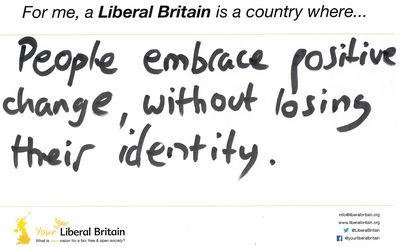 For me, a Liberal Britain is a country where...
People embrace positive
change, without losing
their identity.
Your Liberal Britain
What is your vision for a fair, free & open society?
info@liberalbritain.org
www.liberalbritain.org
@LiberalBritain
@yourliberalbritain